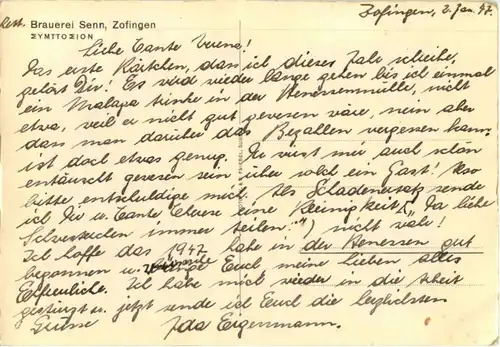 Rest. Brauerei Senn, Zofingen
ΣΥΜΠΟΣΙΟΝ
Zofingen, 2. Jan. 47.
Liebe Tante Verena!
Das erste Kärtchen, dass ich dieses Jahr schreibe,
gehört Dir! Es wird wieder lange gehen bis ich einmal
ein Malaga trinke in der, nicht
etwa, weil er nicht gut gewesen wäre, nein aber
dass man darüber das Bezahlen vergessen kann,
ist doch etwas genug. Du wirst mir auch schön
entäuscht gewesen sein über solch ein Gast! Also
bitte entschuldige mich. Als Schadenersatz sende
ich Dir u. Tante eine Kleinigkeit (Ja liebe
Schwestuchen immer teilen!") nicht wahr!
Ich hoffe das 1947 habe in der gut
begonnen u. Euch meine lieben alles
Erfreuliche. Ich habe mich wieder in die Arbeit
gestürzt u. jetzt sende ich Euch die herzlichsten
Grüsse Ida Eigenmann.